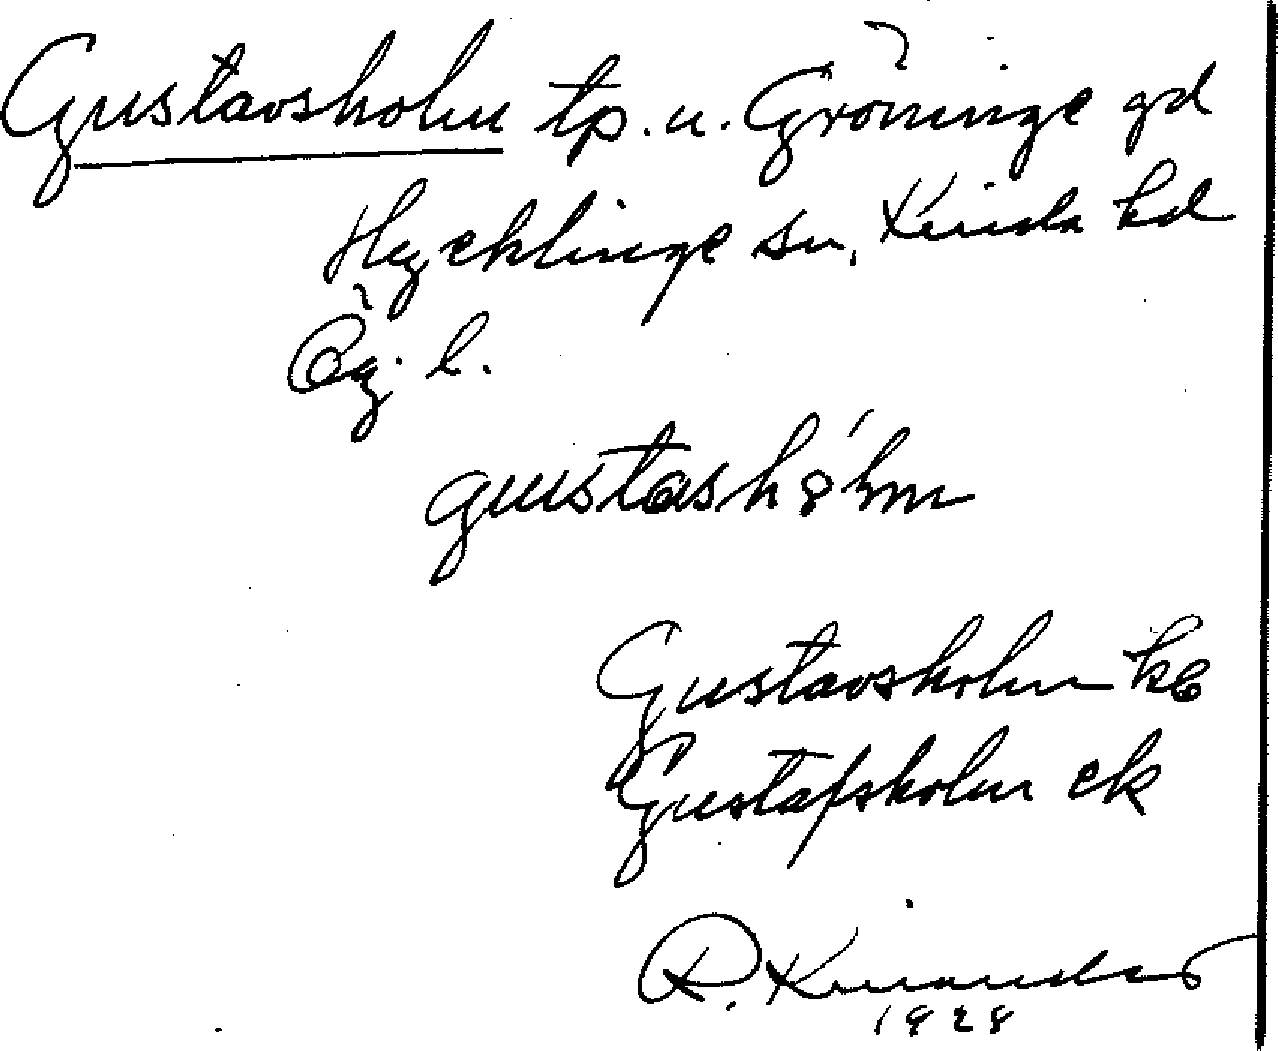 Gustavsholm tp. u. Gröninge gd
Hycklinge sn, Kinda hd
Ög. l.
gustash8´lm
Gustavsholm kb
Gustafsholm ek
R. Kinander
1928